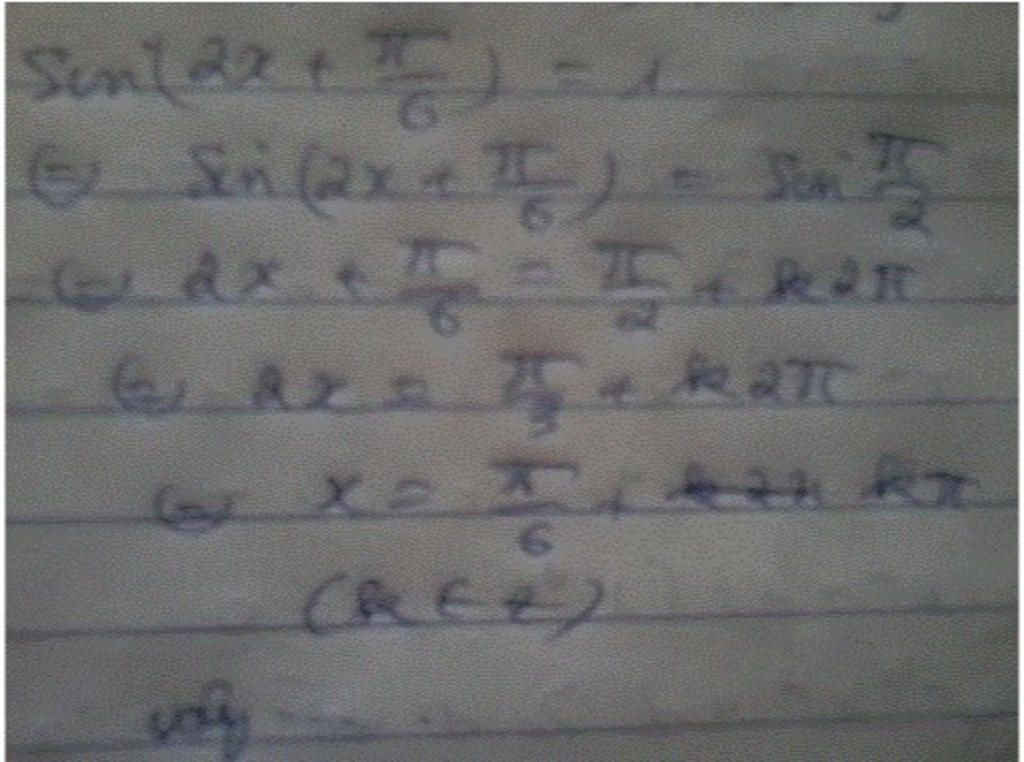 Sin(2x + π/6) = 1
⇔ Sin(2x + π/6) = Sin π/2
⇔ 2x + π/6 = π/2 + k2π
⇔ 2x = π/3 + k2π
⇔ x = π/6 + kπ
(k ∈ z)
vậy